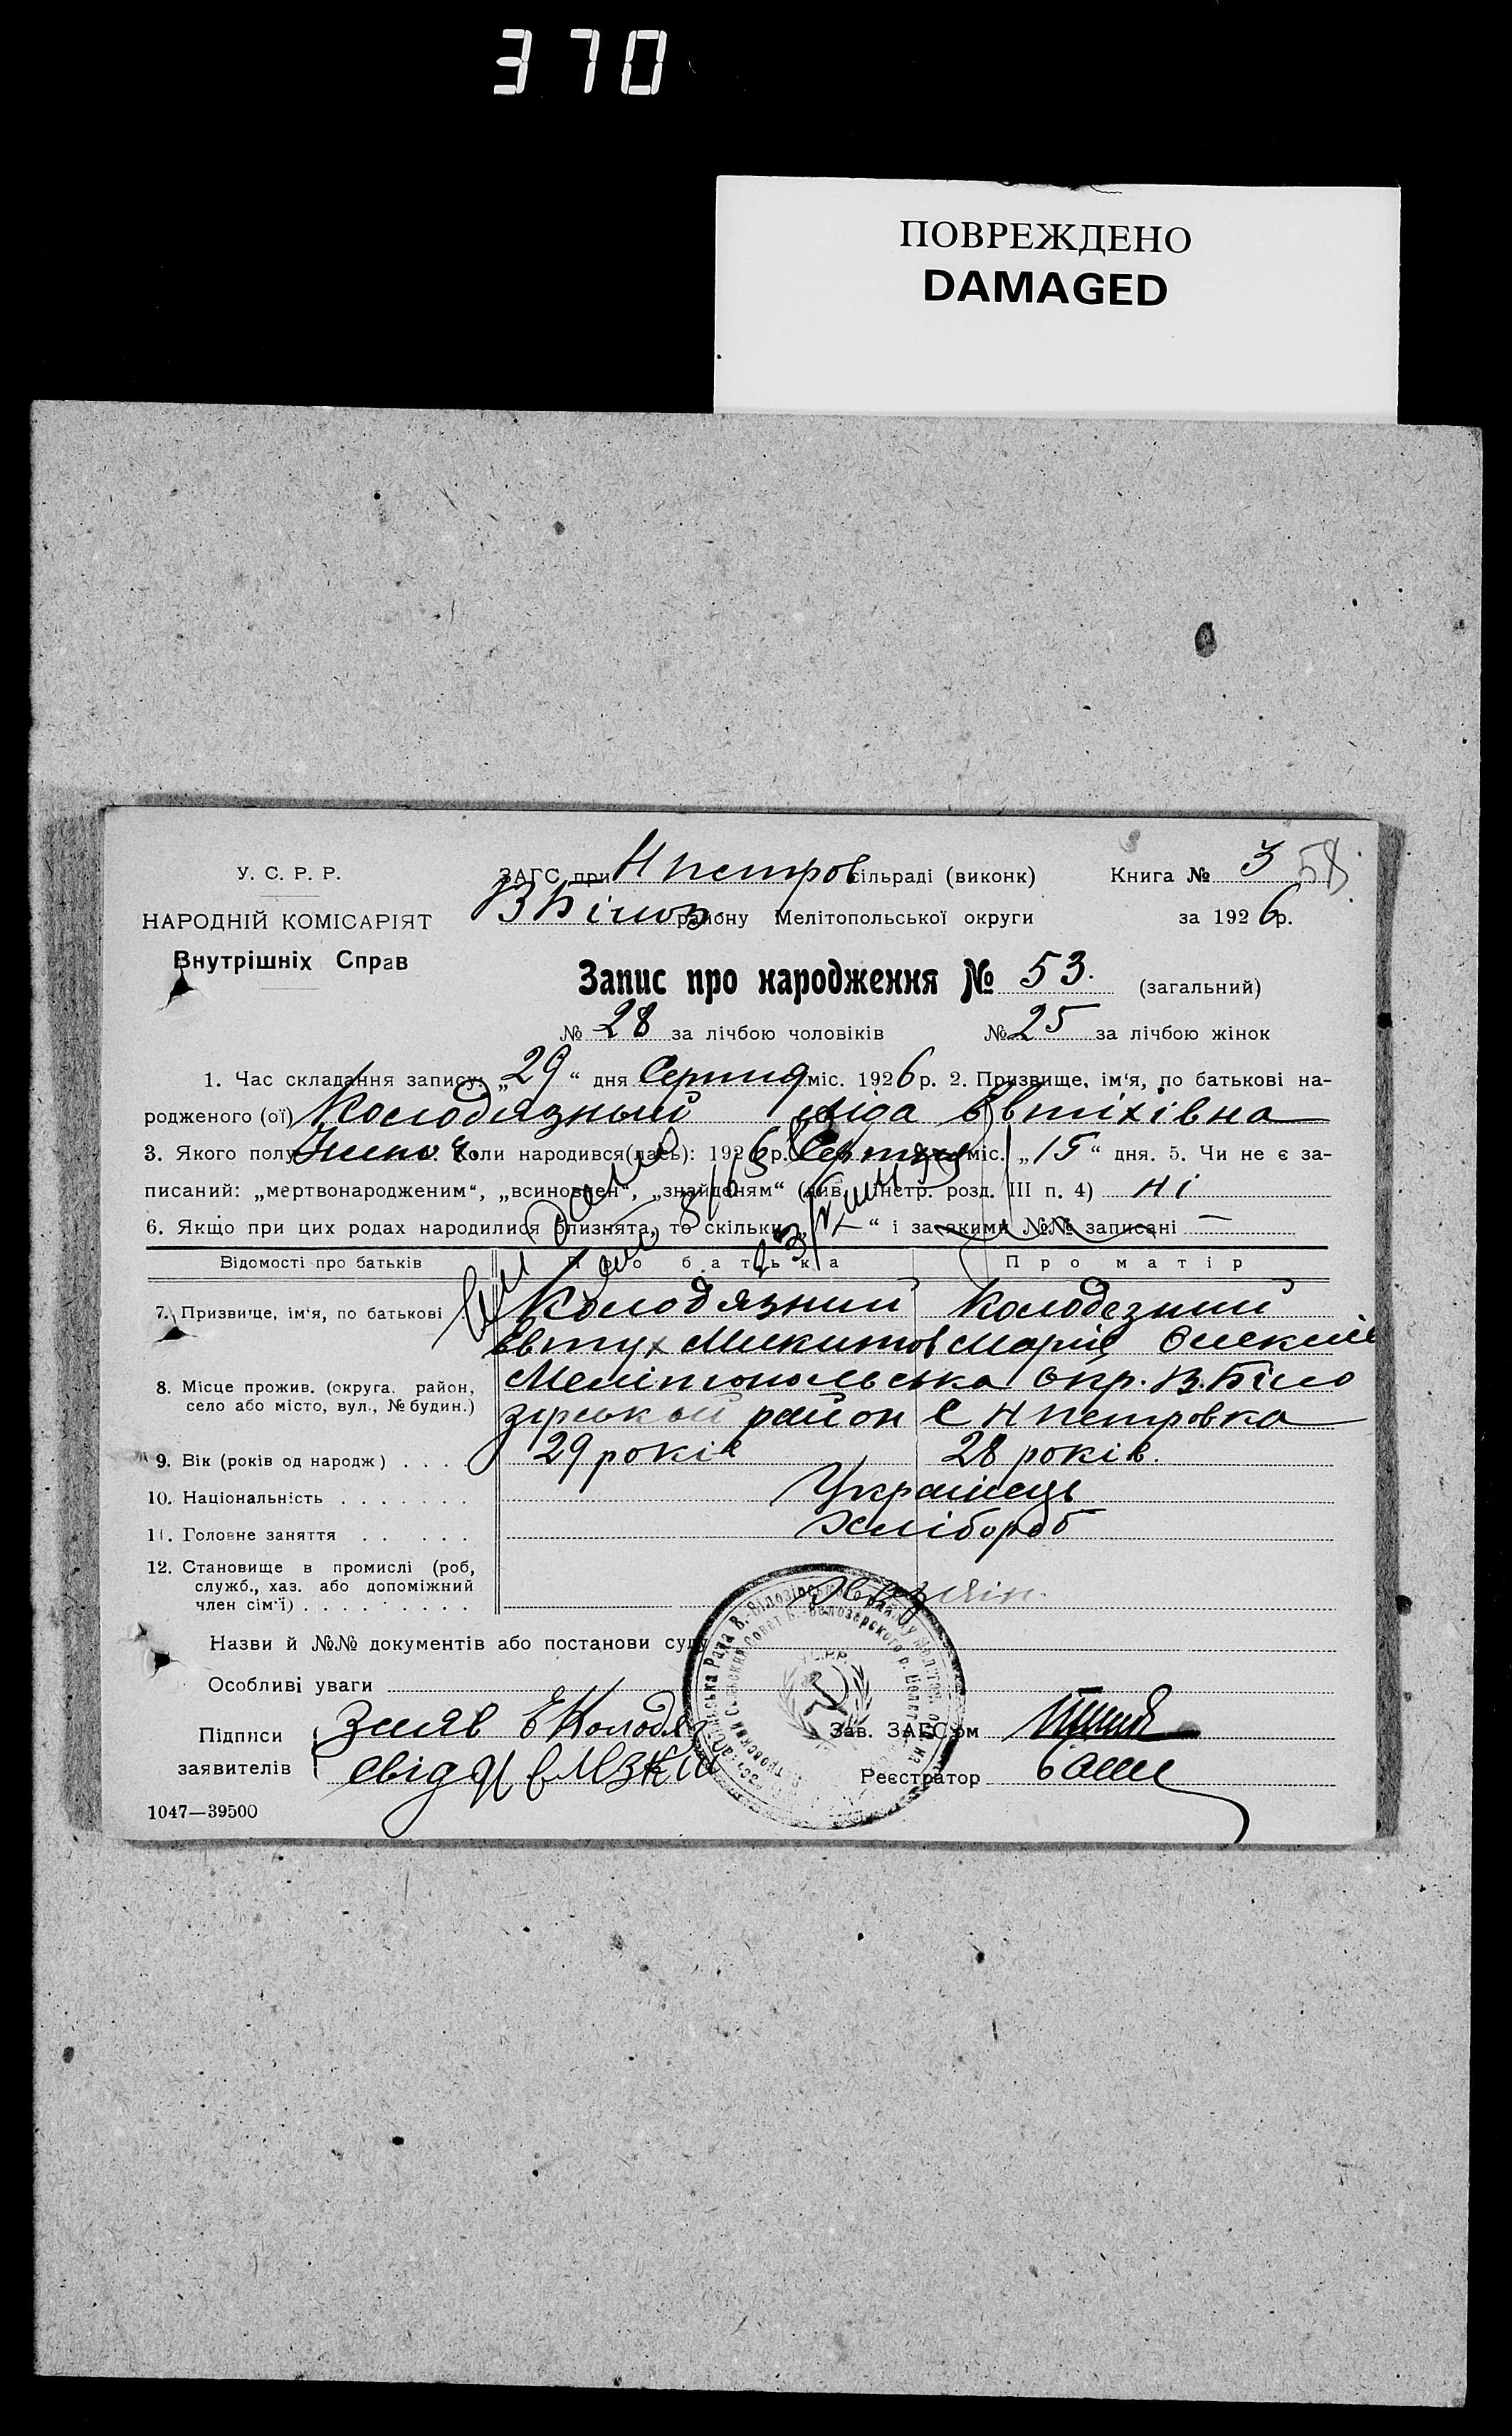 370
ПОВРЕЖДЕНО
DAMAGED
У. С. Р. Р.
ЗАГС при Н петров сільраді (виконк) Книга № 3 58
НАРОДНІЙ КОМІСАРІЯТ
В Білоз району Мелітопольської округи за 1926 р.
Внутрішніх Справ
Запис про народження № 53. (загальний)
№ 28 за лічбою чоловіків № 25 за лічбою жінок
1. Час складання запису: „29“ дня Серпня міс. 1926 р. 2. Призвище, ім'я, по батькові на-
родженого (ої) Колодязный Ліда Євтіхівна
3. Якого полу Жіноч. 4. Коли народився(лась): 1926 р. Серпня міс. „15“ дня. 5. Чи не є за-
писаний: „мертвонародженим“, „всиновлен“, „знайденям“ (див. Інстр. розд. III п. 4) Ні
6. Якщо при цих родах народилися близнята, то скільки „—“ і за якими №№ записані —
Відомості про батьків Про батька Про матір
7. Призвище, ім'я, по батькові Колодязний Колодезний
Євтух Микитов Марія Олексіє
8. Місце прожив. (округа, район, Мелітопольська Окр. В. Біло
село або місто, вул., № будин.) зірський район С Н петровка
9. Вік (років од народж) . . . 29 років 28 років.
10. Національність . . . . . . . Українець
11. Головне заняття . . . . . . Хлібороб
12. Становище в промислі (роб,
служб., хаз. або допоміжний
член сім'ї) . . . . . . . . . Хазяїн.
Назви й №№ документів або постанови суду
Особливі уваги
У.С.Р.Р.
Підписи заяв Е Колодяз Зав. ЗАГС'ом
заявителів свід Реєстратор
1047—39500